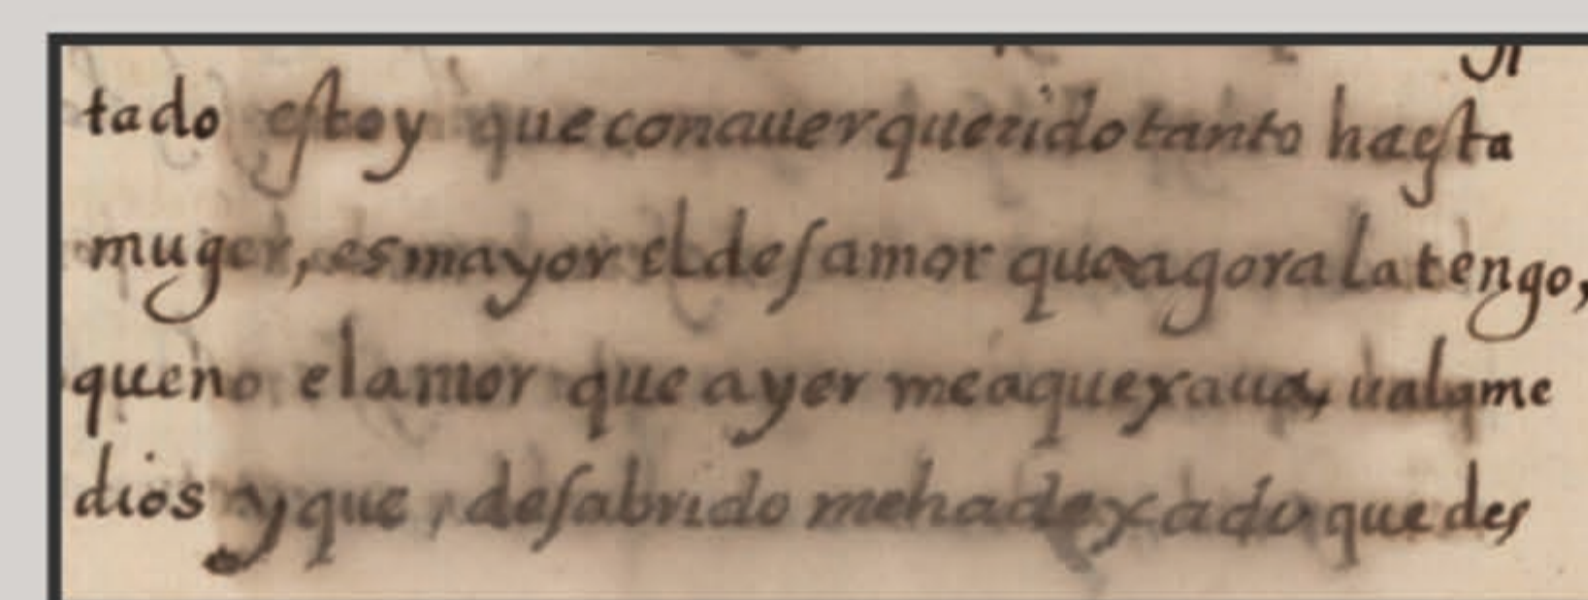 tado estoy que conauer querido tanto haesta
muger, es mayor el desamor que agora la tengo,
que no el amor que ayer me aquexaua, ualgme
dios y que, desabrido me ha dexado que des